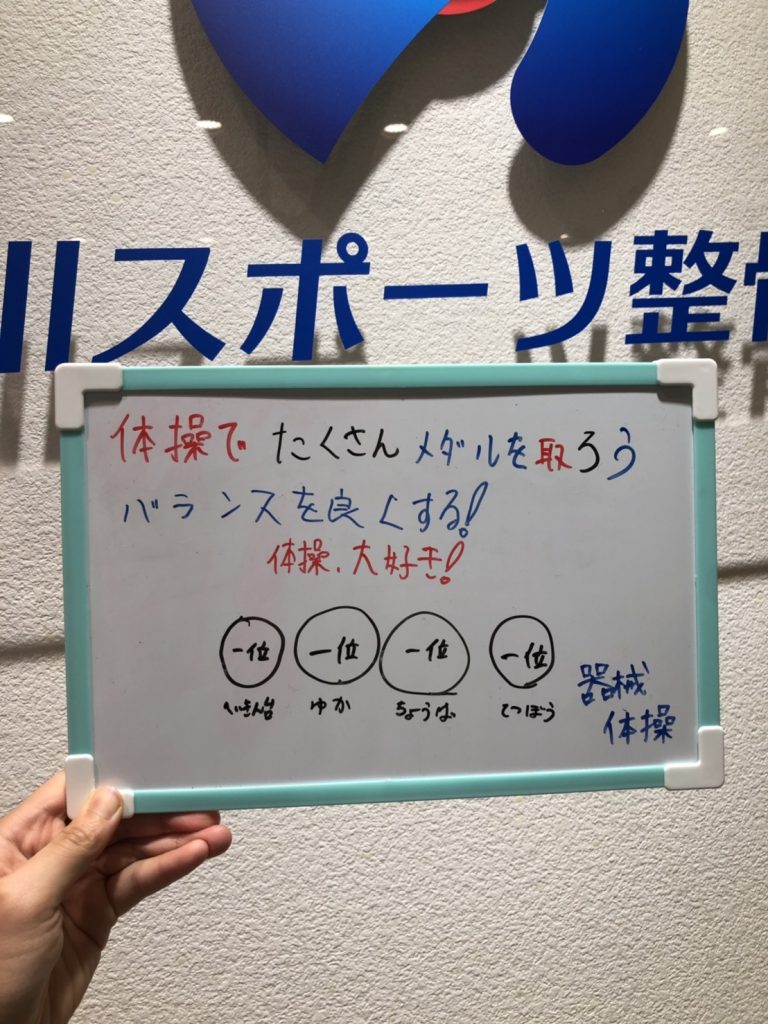 川スポーツ整骨
体操で たくさん メダルを取ろう
バランスを良くする!
体操、大好き!
一位 一位 一位 一位
へいきん台 ゆか ちょうば てつぼう
器械
体操